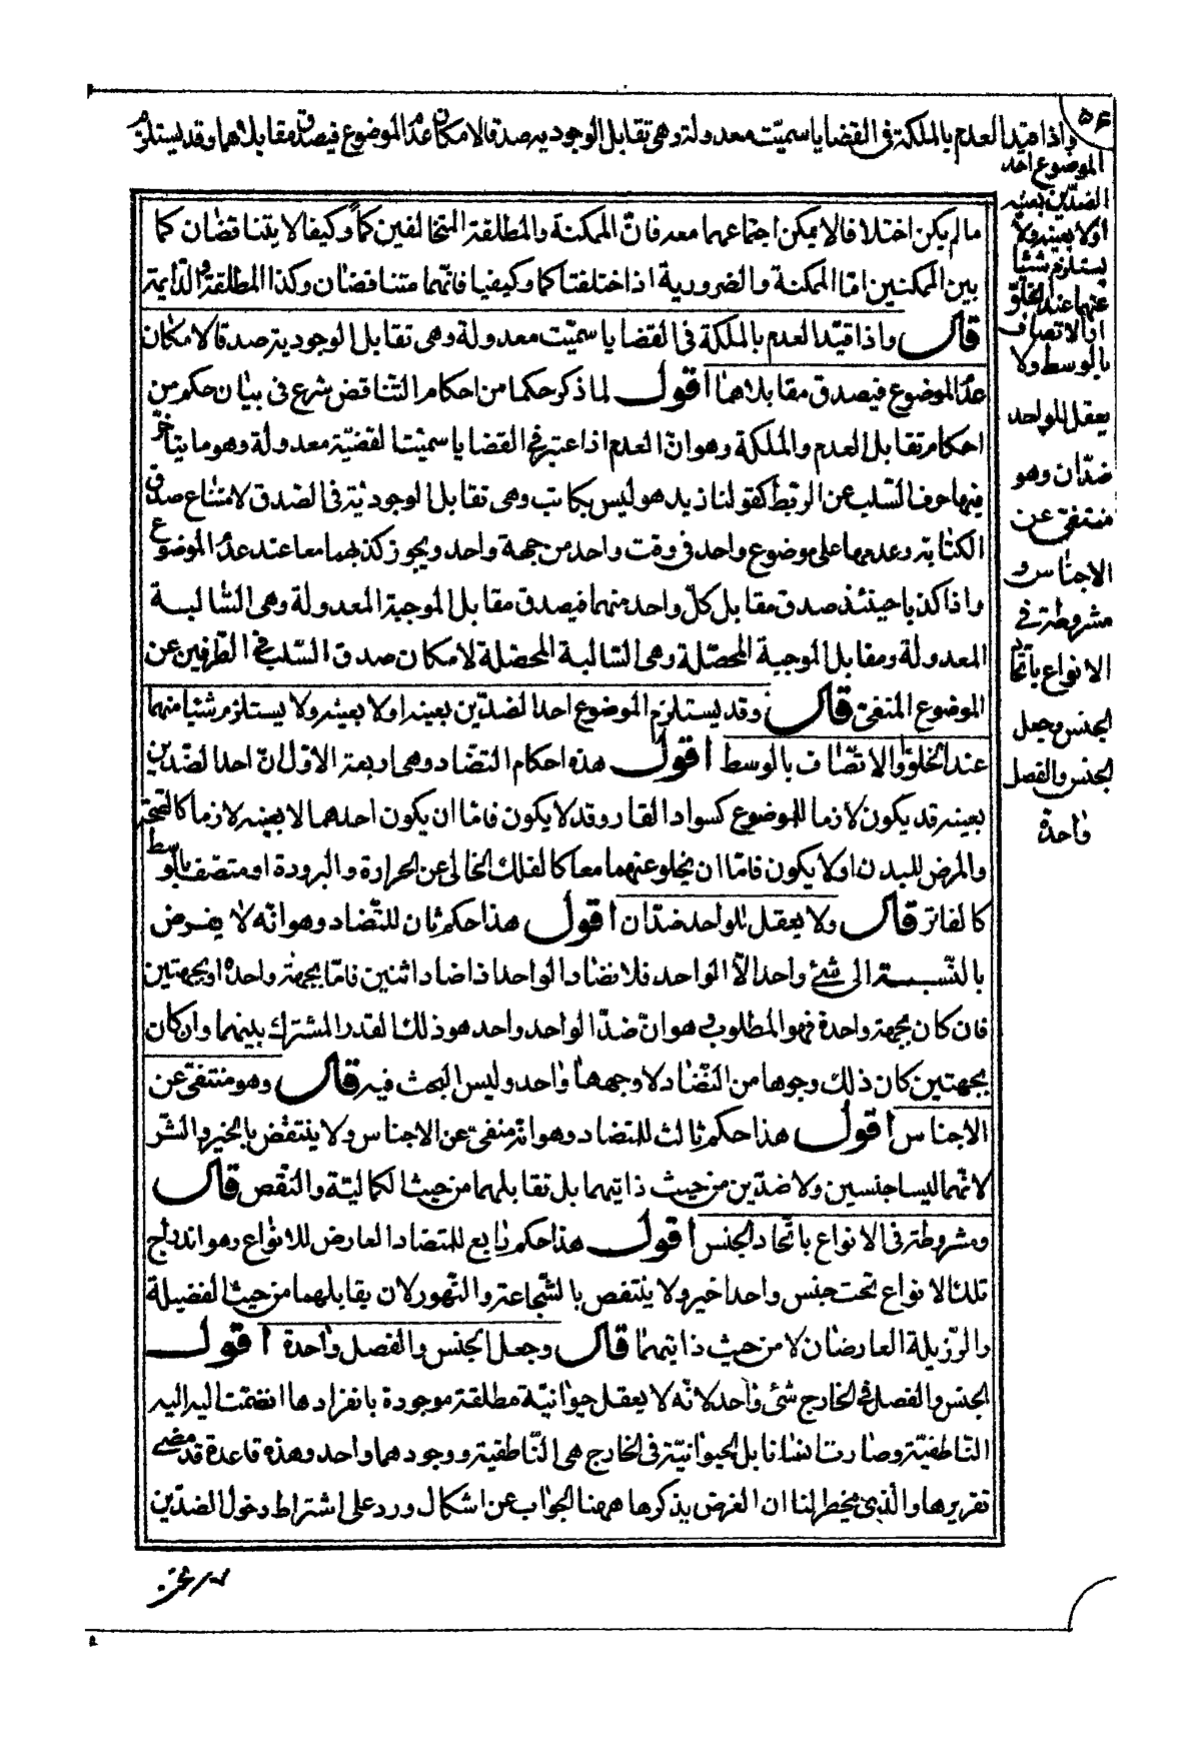 ٥٤
واذا قيد العدم بالملكة فى القضايا سميّت معدولة وهى تقابل الوجودية صدقا لامكان عدم الموضوع فيصدق مقابلاهما وقد يستلزم
الموضوع احد
الضدّين بعينه
اولا بعينه ولا
يستلزم شيئا
عنهما عند الخلوّ
او الاتصاف
بالوسط ولا
يعقل للواحد
ضدّان وهو
منتفى عن
الاجناس و
مشروطة فى
الانواع باتحاد
الجنس وجعل
الجنس والفصل
واحدة
مالم يكن اختلافا لا يمكن اجتماعهما معه فانّ الممكنة والمطلقة المتخالفين كمّاً وكيفا لا يتناقضان كما
بين الممكنين امّا الممكنة والضرورية اذا اختلفتا كما وكيفيا فانّهما متناقضان وكذا المطلقة والدّايمة
قال واذا قيّد العدم بالملكة فى القضايا سميّت معدولة وهى تقابل الوجودية صدقا لامكان
عدم الموضوع فيصدق مقابلاهما اقول لما ذكر حكما من احكام التناقض شرع فى بيان حكم من
احكام تقابل العدم والملكة وهو انّ العدم اذا عتبر فى القضايا سميّت القضيّة معدولة وهو ما يتاخّر
فيها حرف السّلب عن الربط كقولنا زيد هو ليس بكاتب وهى تقابل الوجوديّة فى الصدق لامتناع صدق
الكتابة وعدمها على موضوع واحد فى وقت واحد من جهة واحد ويجوز كذبهما معا عند عدم الموضوع
واذا كذبا حينئذ صدق مقابل كلّ واحد منهما فيصدق مقابل الموجبة المعدولة وهى السّالبة
المعدولة ومقابل الموجبة المحصّلة وهى السّالبة المحصّلة لامكان صدق السّلب فى الطّرفين عن
الموضوع المنفى قال وقد يستلزم الموضوع احد الضدّين بعينه اولا بعينه ولا يستلزم شيئا منهما
عند الخلوّ والاتّصاف بالوسط اقول هذه احكام التضاد وهى اربعة الاوّل انّ احد الضّدّين
بعينه قد يكون لازما للموضوع كسواد القار وقد لا يكون فامّا ان يكون احدهما لا بعينه لازما كالصّحة
والمرض للبدن اولا يكون فامّا ان يخلو عنهما معا كالفلك الخالى عن الحرارة والبرودة او متصف بالوسط
كالفاتر قال ولا يعقل للواحد ضدّان اقول هذا حكم ثان للتّضاد وهو انّه لا يفرض
بالنّسبة الى شئ واحد الّا الواحد فلا نضاد الواحد اذا ضاد اثنين فامّا بجهة واحدة او بجهتين
فان كان بجهة واحدة فهو المطلوب هو انّ ضدّ الواحد واحد هو ذلك القدر المشترك بينهما وان كان
بجهتين كان ذلك وجوها من التّضاد لا وجهها واحد وليس البحث فيه قال وهو منتفى عن
الاجناس اقول هذا حكم ثالث للتضاد وهو انّه منفىّ عن الاجناس ولا ينتقض بالخير والشّر
لانّهما ليسا جنسين ولا ضدّين من حيث ذاتيهما بل تقابلهما من حيث الكماليّة والنّقص قال
ومشروطة فى الانواع باتّحاد الجنس اقول هذا حكم رابع للتضاد العارض للانواع وهو اندراج
تلك الانواع تحت جنس واحد اخير ولا ينتقص بالشّجاعة والتّهور لان يقابلهما من حيث الفضيلة
والرّزيلة العارضان لا من حيث ذاتيهما قال وجعل الجنس والفصل واحدة اقول
الجنس والفصل فى الخارج شئ واحد لانّه لا يعقل حيوانيّة مطلقة موجودة بانفرادها انضمّت اليه اليه
النّاطقيّة وصارت انسانا بل الحيوانيّة فى الخارج هى النّاطقية ووجودهما واحد وهذه قاعدة قد مضى
تقريرها والّذى يخطر لنا ان الغرض بذكرها ههنا الجواب عن اشكال ورد على اشتراط دخول الضدّين